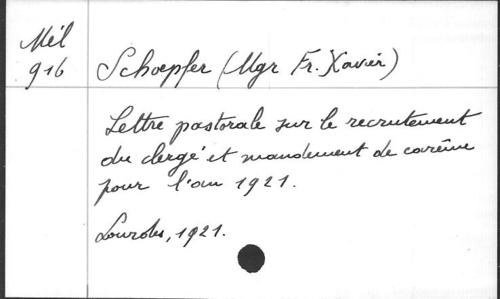 Mél
916
Schoepfer (Mgr Fr. Xavier)
Lettre pastorale sur le recrutement
du clergé et mandement de carême
pour l'an 1921.
Lourdes, 1921.